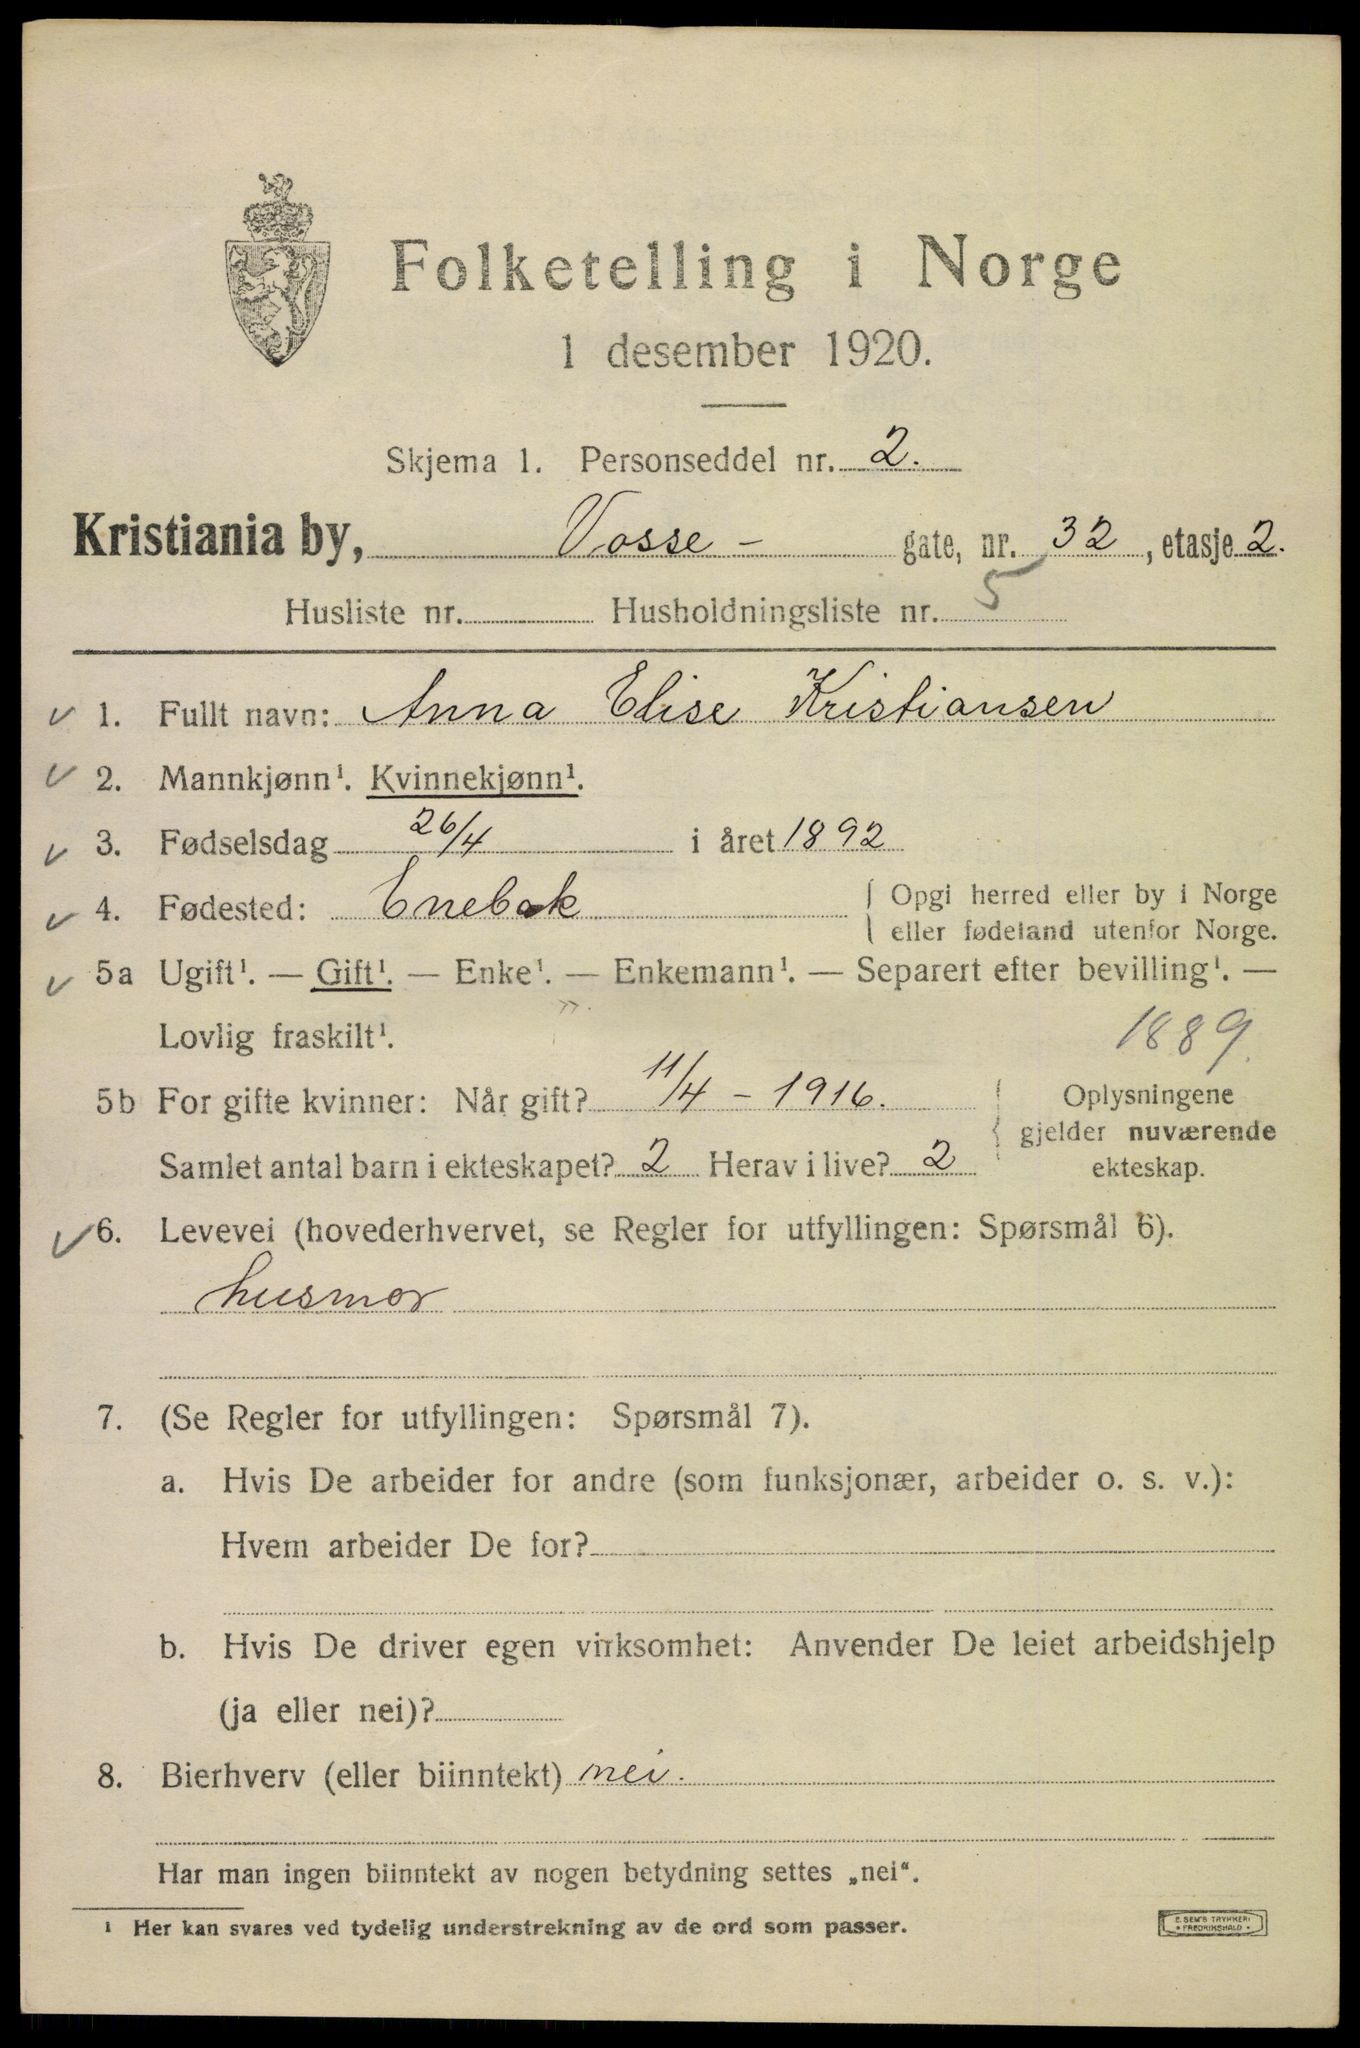 Folketelling i Norge
1 desember 1920.
Skjema 1. Personseddel nr. 2.
Kristiania by, Vosse- gate, nr. 32, etasje 2.
Husliste nr. Husholdningsliste nr. 5
v 1. Fullt navn: Anna Elise Kristiansen
v 2. Mannkjønn¹. Kvinnekjønn¹.
v 3. Fødselsdag 26/4 i året 1892
v 4. Fødested: Enebak { Opgi herred eller by i Norge
eller fødeland utenfor Norge.
v 5a Ugift¹. — Gift¹. — Enke¹. — Enkemann¹. — Separert efter bevilling¹. —
Lovlig fraskilt¹. 1889.
5b For gifte kvinner: Når gift? 11/4 - 1916. { Oplysningene
gjelder nuværende
Samlet antal barn i ekteskapet? 2 Herav i live? 2 ekteskap.
v 6. Levevei (hovederhvervet, se Regler for utfyllingen: Spørsmål 6).
husmor
7. (Se Regler for utfyllingen: Spørsmål 7).
a. Hvis De arbeider for andre (som funksjonær, arbeider o. s. v.):
Hvem arbeider De for?
b. Hvis De driver egen virksomhet: Anvender De leiet arbeidshjelp
(ja eller nei)?
8. Bierhverv (eller biinntekt) nei.
Har man ingen biinntekt av nogen betydning settes „nei“.
¹ Her kan svares ved tydelig understrekning av de ord som passer.
E. SEM'S TRYKKERI
• FREDRIKSHALD •